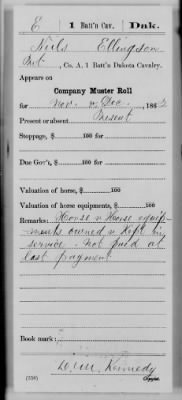 E | 1 Batt'n Cav. | Dak.
Neils Ellingson
Pvt, Co. A, 1 Batt'n Dakota Cavalry.
Appears on
Company Muster Roll
for Nov. & Dec., 186
Present or absent Present
Stoppage, $ 100 for
Due Gov't, $ 100 for
Valuation of horse, $ 100
Valuation of horse equipments, $ 100
Remarks: Horse & Horse equip-
ments owned & kept in
service. Not paid at
last payment
Book mark:
W. M. Kennedy
(358) Copyist.